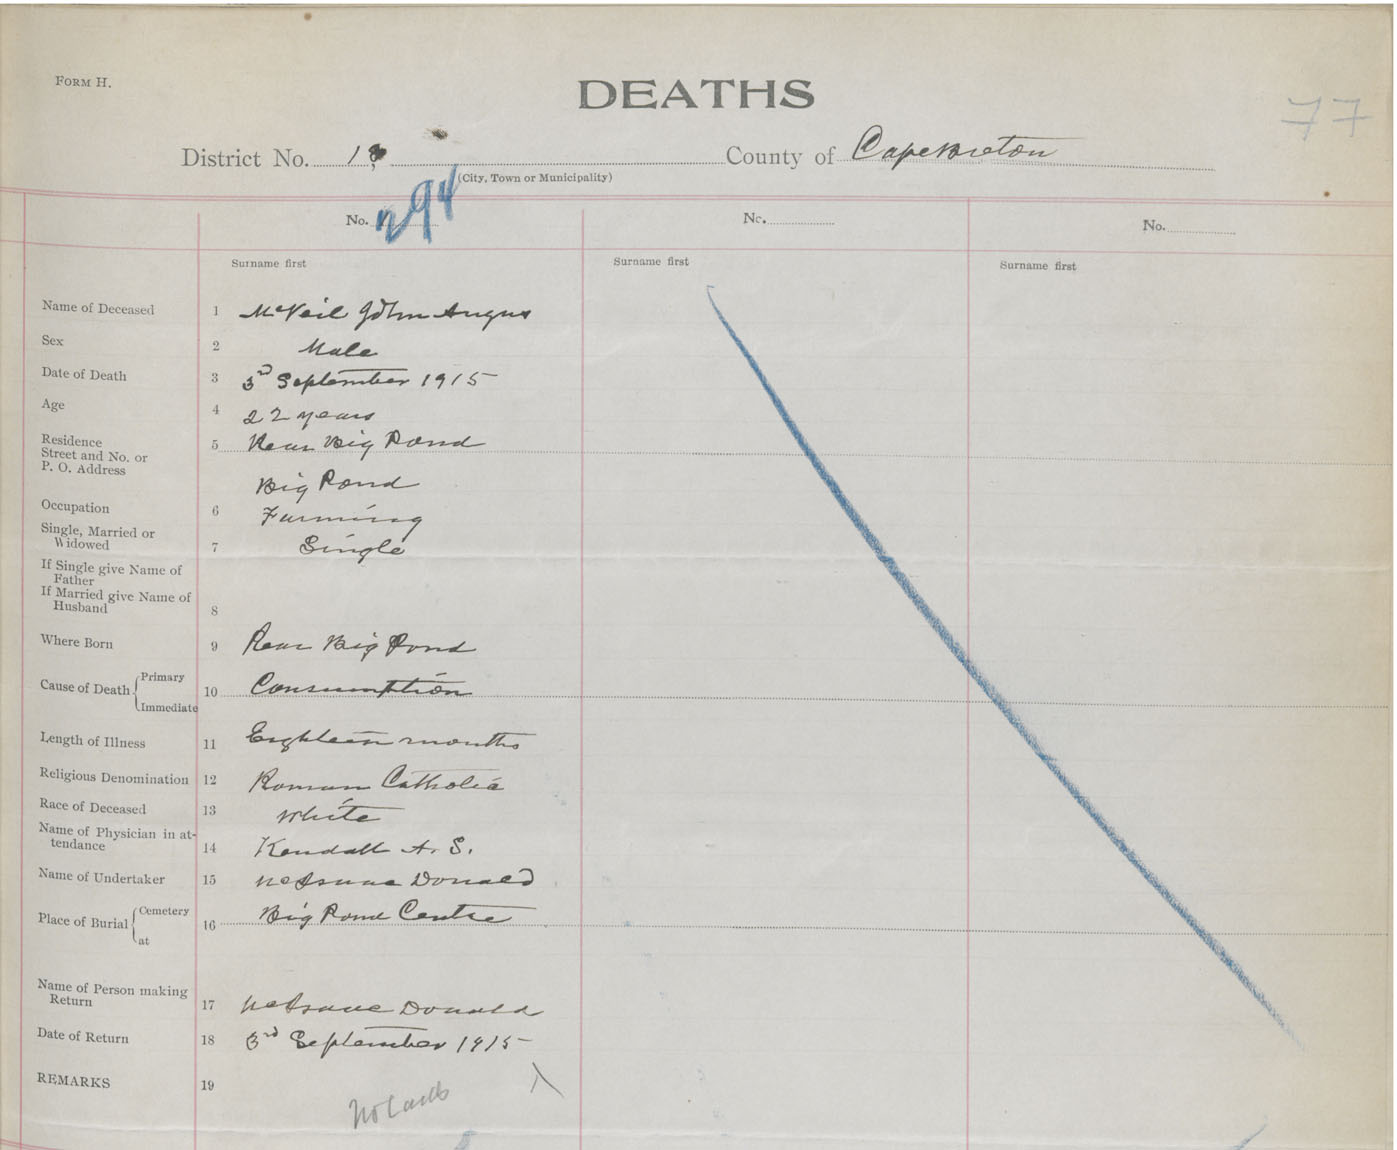 FORM H.
DEATHS
77
District No. 18 County of Cape Breton
(City, Town or Municipality)
No. 294 No. No.
Surname first Surname first Surname first
Name of Deceased 1 McNeil John Angus
Sex 2 Male
Date of Death 3 3rd September 1915
Age 4 22 years
Residence
Street and No. or 5 Rear Big Pond
P. O. Address
Big Pond
Occupation 6 Farming
Single, Married or
Widowed 7 Single
If Single give Name of
Father
If Married give Name of
Husband 8
Where Born 9 Rear Big Pond
Primary
Cause of Death 10 Consumption
Immediate
Length of Illness 11 Eighteen months
Religious Denomination 12 Roman Catholic
Race of Deceased 13 White
Name of Physician in at-
tendance 14 Kendall A. S.
Name of Undertaker 15 McIsaac Donald
Cemetery
Place of Burial 16 Big Pond Centre
at
Name of Person making
Return 17 McIsaac Donald
Date of Return 18 3rd September 1915
REMARKS 19
No Card